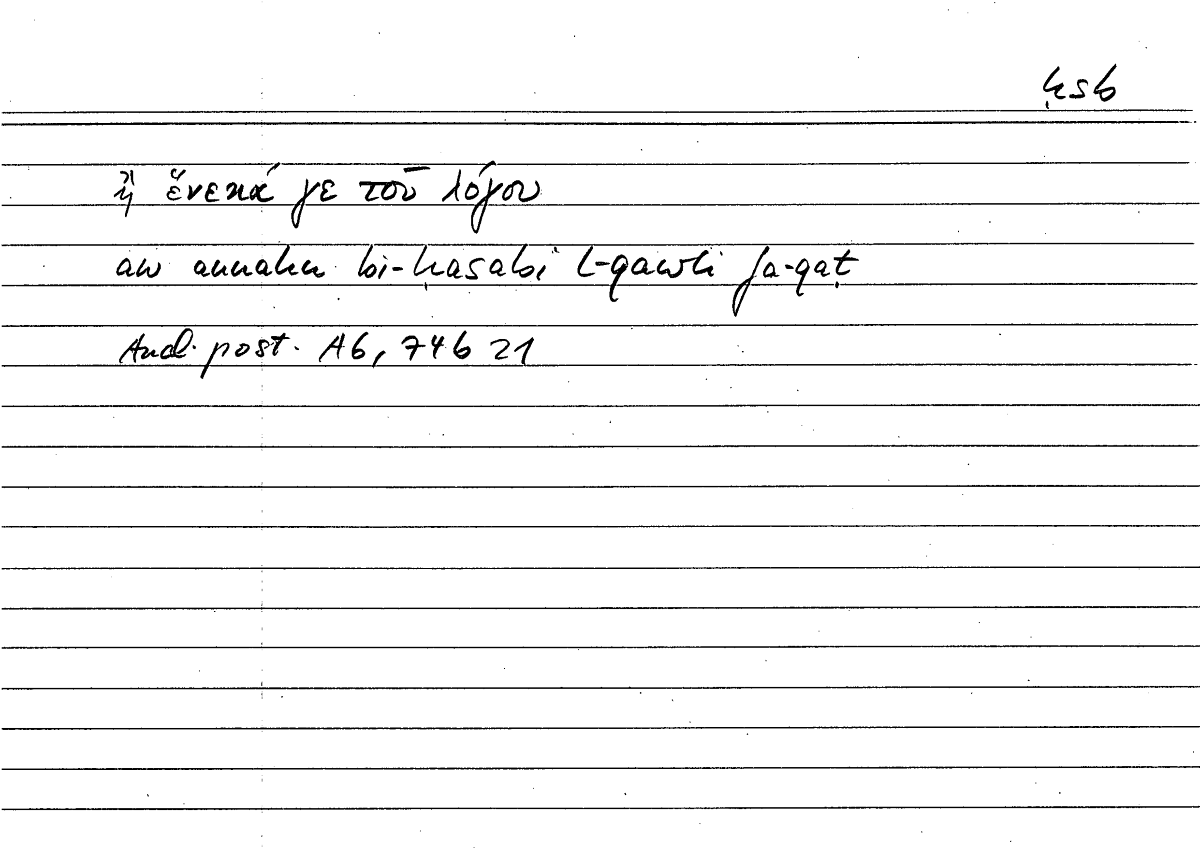 ḥsb
ἢ ἕνεκά γε τοῦ λόγου
aw annahu bi-ḥasabi l-qawli fa-qaṭ
Anal. post. A6, 74b 21